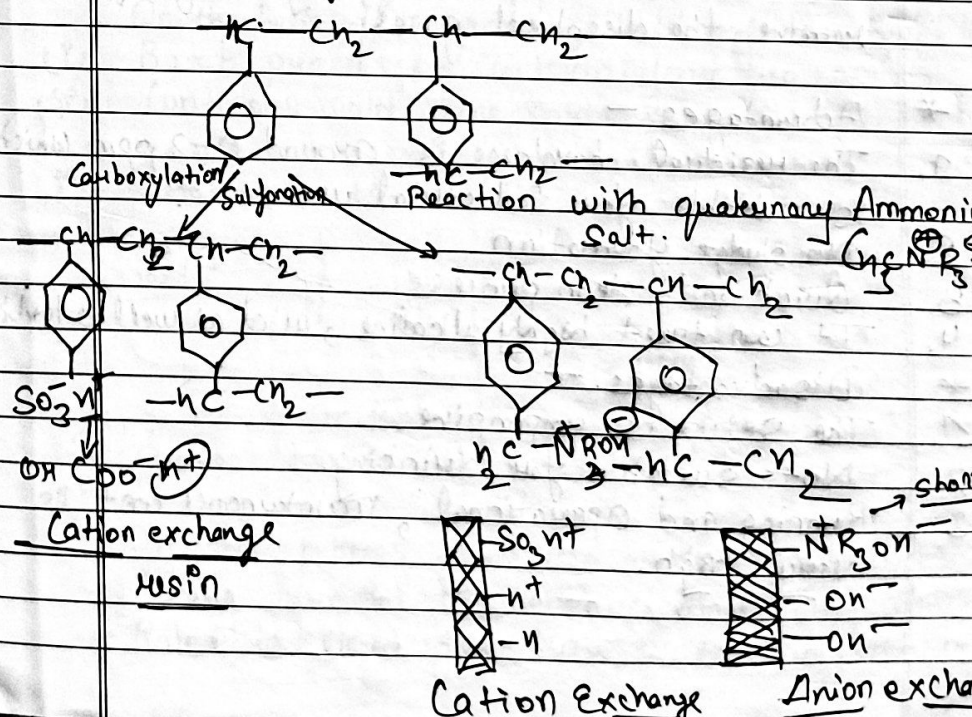 HC — CH2 — CH — CH2
—HC—CH2—
Carboxylation / Sulfonation
Reaction with quaternary Ammoni
Salt.
CH3 N⊕ R3
—CH—CH2—CH—CH2—
—CH—CH2—CH—CH2
SO3-H+
—HC—CH2—
H2C—N+R3OH⊖
—HC—CH2
OR COO-H+
Cation exchange
resin
SO3H+
-H+
-H
Cation Exchange
N+R3OH → shor
-OH-
-OH-
Anion excha